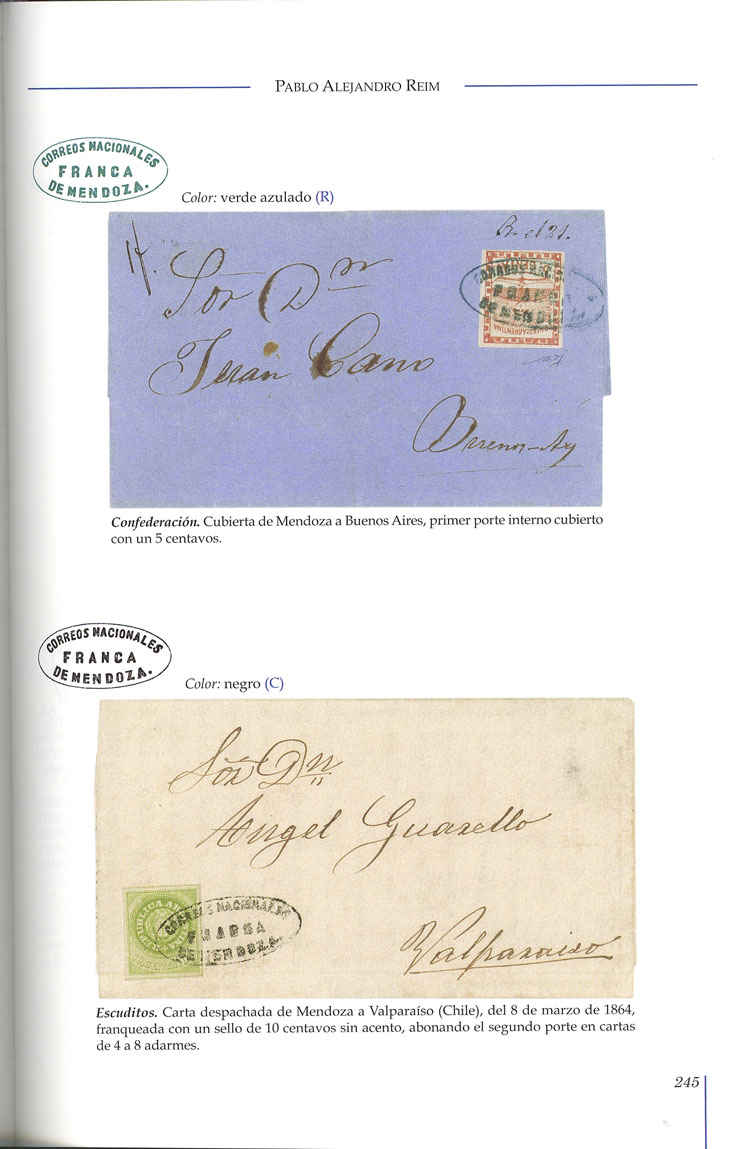 PABLO ALEJANDRO REIM
CORREOS NACIONALES
FRANCA
DE MENDOZA.
Color: verde azulado (R)
B. el 21.
Sor Dn
Juan Cano
Buenos-Ays
CORREOS NAC
FRANCA
DE MENDOZA
ARGENTINA
Confederación. Cubierta de Mendoza a Buenos Aires, primer porte interno cubierto
con un 5 centavos.
CORREOS NACIONALES
FRANCA
DE MENDOZA.
Color: negro (C)
Sor Dn
Angel Guarello
Valparaiso
CORREOS NACIONALES
FRANCA
DE MENDOZA.
Escuditos. Carta despachada de Mendoza a Valparaíso (Chile), del 8 de marzo de 1864,
franqueada con un sello de 10 centavos sin acento, abonando el segundo porte en cartas
de 4 a 8 adarmes.
245